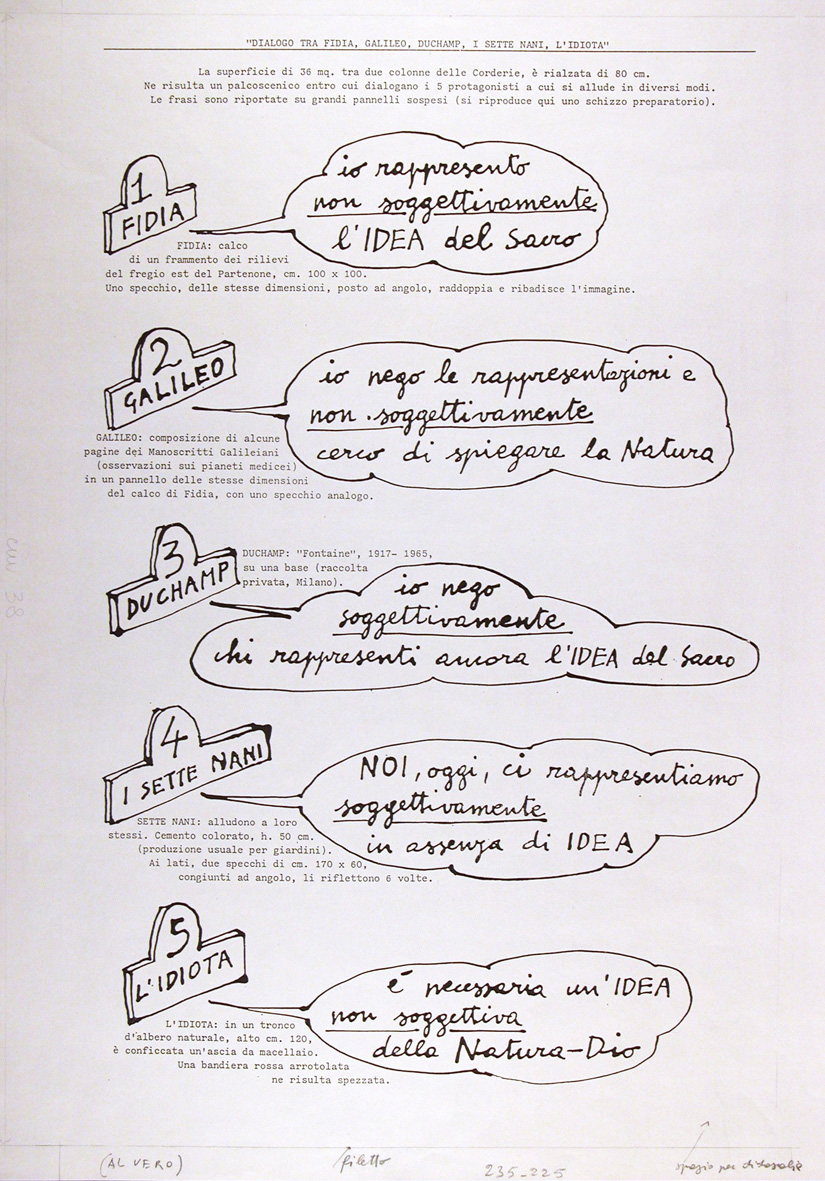 "DIALOGO TRA FIDIA, GALILEO, DUCHAMP, I SETTE NANI, L'IDIOTA"
La superficie di 36 mq. tra due colonne delle Corderie, è rialzata di 80 cm.
Ne risulta un palcoscenico entro cui dialogano i 5 protagonisti a cui si allude in diversi modi.
Le frasi sono riportate su grandi pannelli sospesi (si riproduce qui uno schizzo preparatorio).
1
FIDIA
io rappresento
non soggettivamente
l'IDEA del Sacro
FIDIA: calco
di un frammento dei rilievi
del fregio est del Partenone, cm. 100 x 100.
Uno specchio, delle stesse dimensioni, posto ad angolo, raddoppia e ribadisce l'immagine.
2
GALILEO
io nego le rappresentazioni e
non soggettivamente
cerco di spiegare la Natura
GALILEO: composizione di alcune
pagine dei Manoscritti Galileiani
(osservazioni sui pianeti medicei)
in un pannello delle stesse dimensioni
del calco di Fidia, con uno specchio analogo.
3
DUCHAMP
DUCHAMP: "Fontaine", 1917- 1965,
su una base (raccolta
privata, Milano).
io nego
soggettivamente
chi rappresenti ancora l'IDEA del Sacro
4
I SETTE NANI
NOI, oggi, ci rappresentiamo
soggettivamente
in assenza di IDEA
SETTE NANI: alludono a loro
stessi. Cemento colorato, h. 50 cm.
(produzione usuale per giardini).
Ai lati, due specchi di cm. 170 x 60,
congiunti ad angolo, li riflettono 6 volte.
5
L'IDIOTA
é necessaria un'IDEA
non soggettiva
della Natura-Dio
L'IDIOTA: in un tronco
d'albero naturale, alto cm. 120,
è conficcata un'ascia da macellaio.
Una bandiera rossa arrotolata
ne risulta spezzata.
cm 38
(AL VERO)
filetto
235-225
spazio per